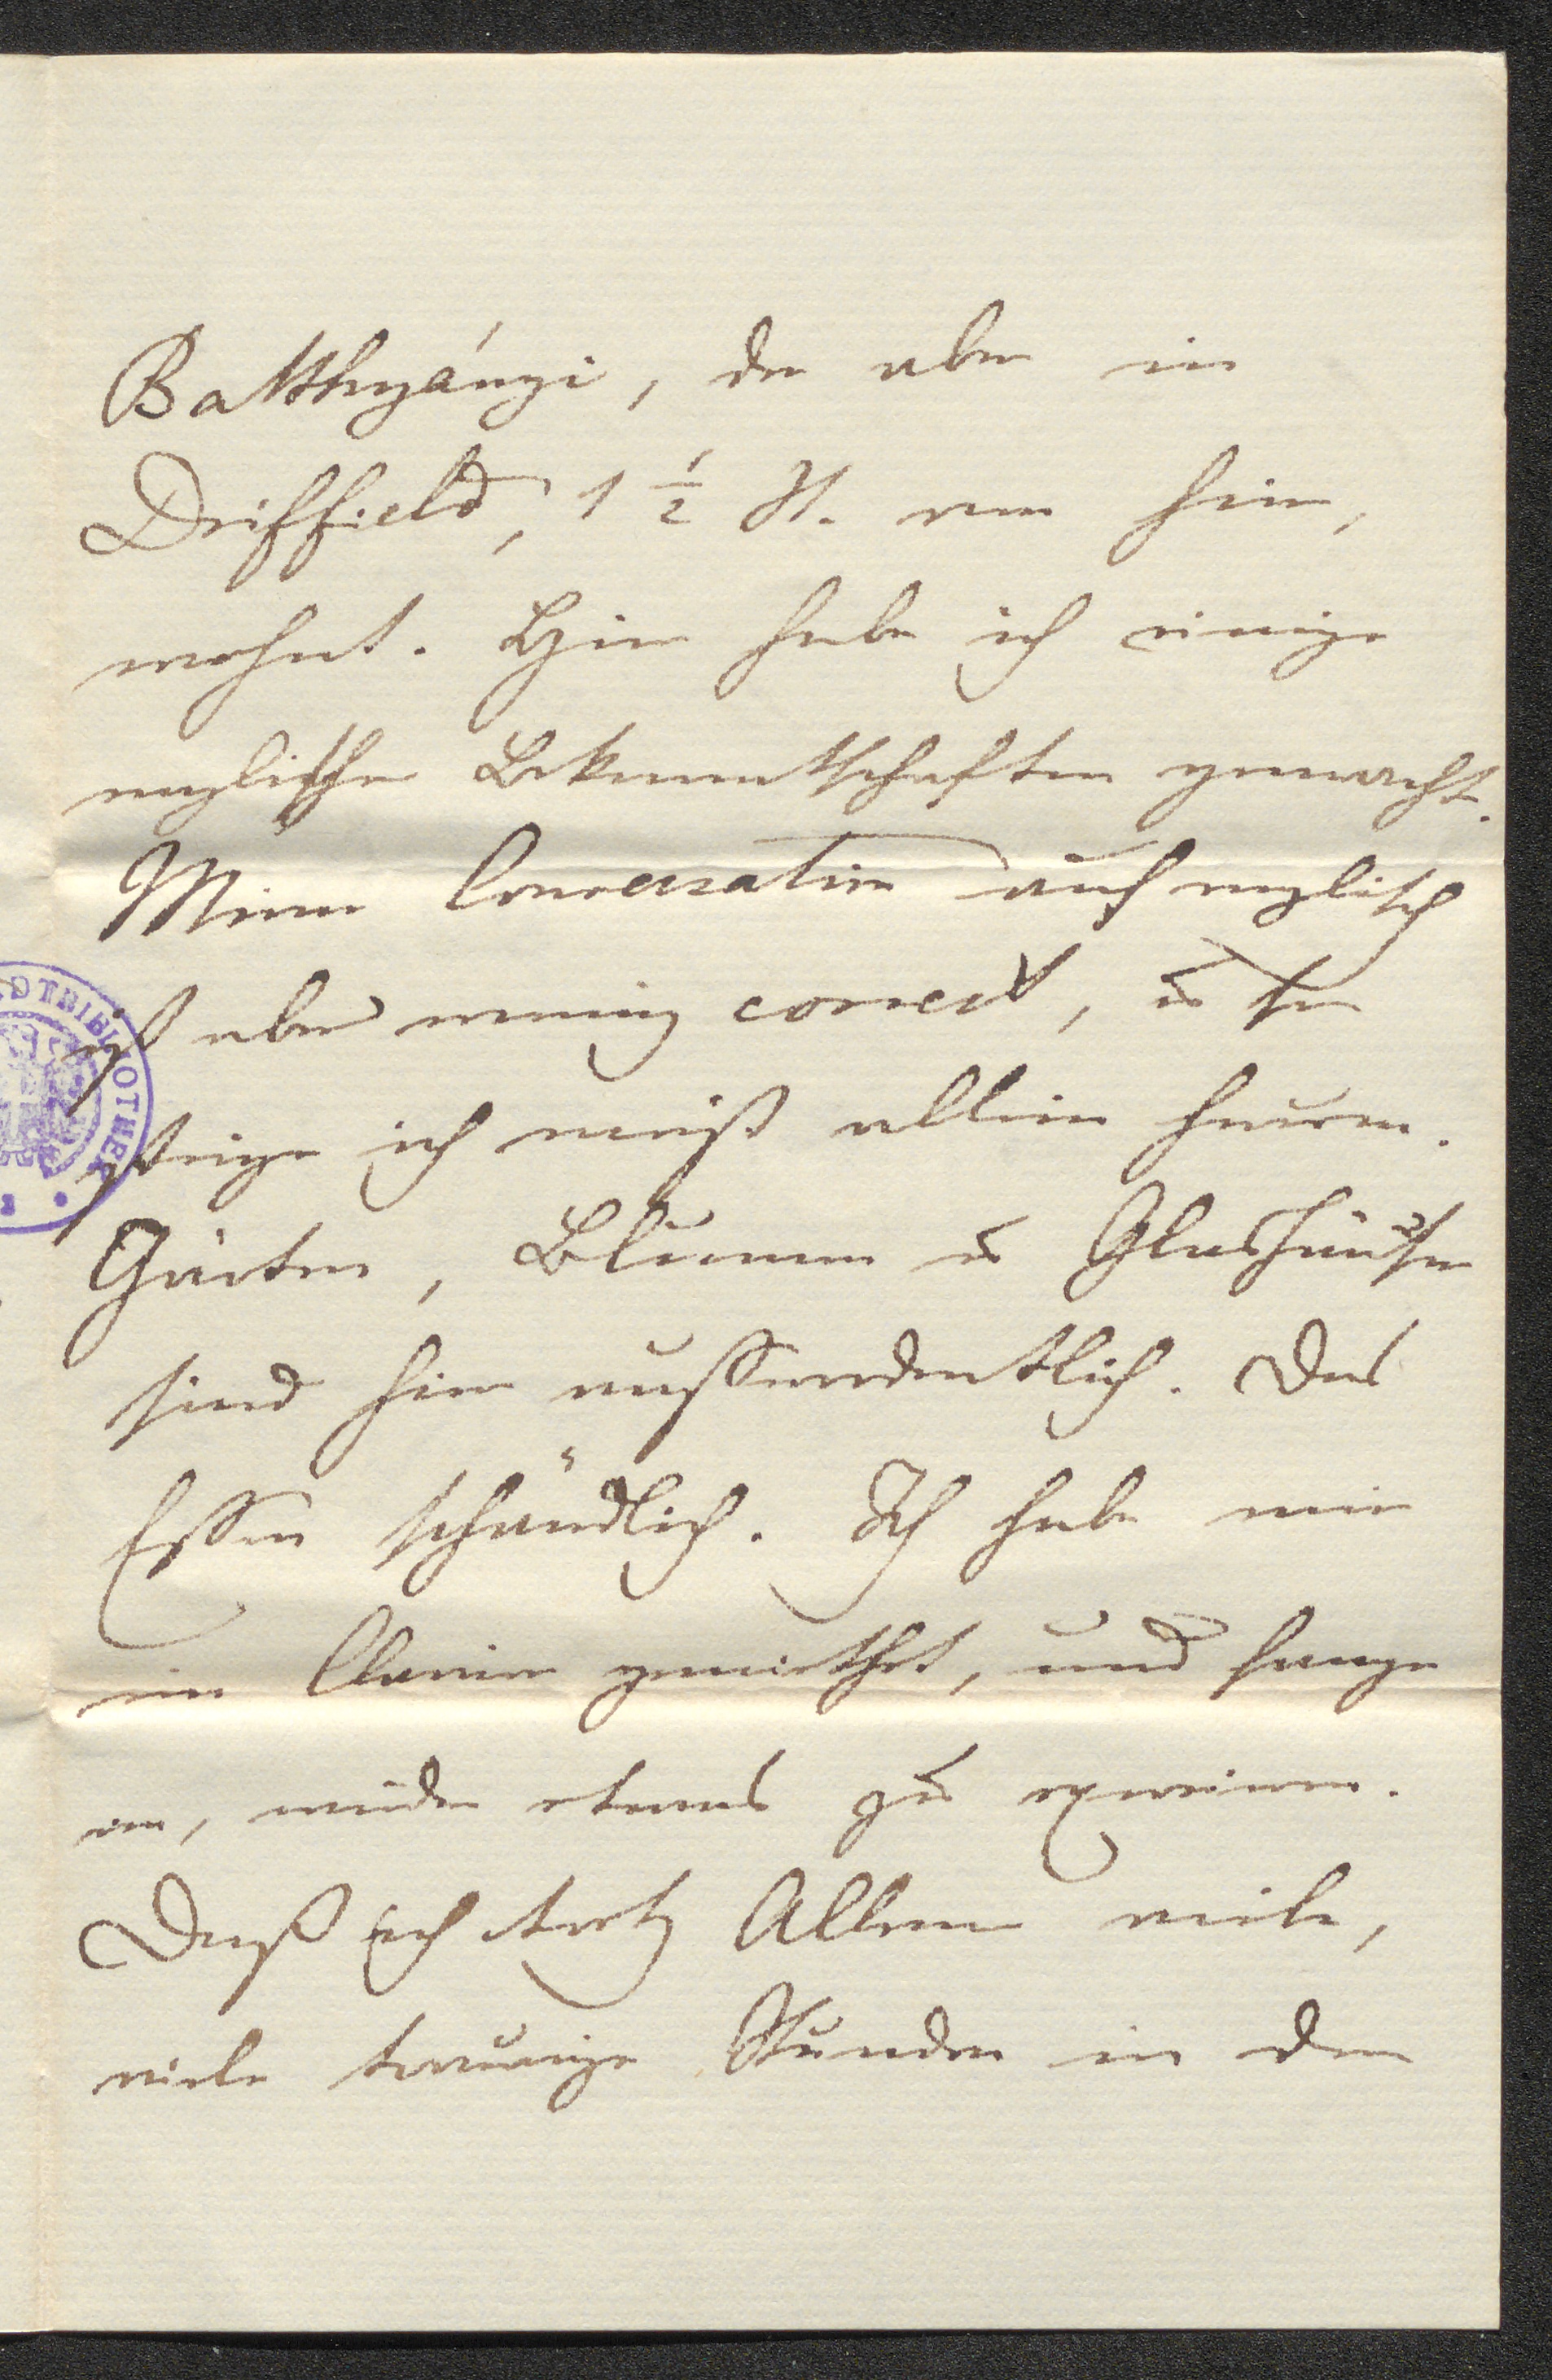 Batthyányi, der aber in
Driffield, 1 1/2 St. von hier,
wohnt. Hier habe ich einige
englische Bekanntschaften gemacht.
Meine Conversation auf englisch
ist aber wenig correct, u so
steige ich meist allein herum.
Gärten, Blumen u Glashäuser
sind hier außerordentlich. Das
Essen schändlich. Ich habe mir
ein Clavier gemiethet, und fange
an, wieder etwas zu
Daß ich trotz Allem viele,
viele traurige Stunden in den
DTBIBLIOTHEK